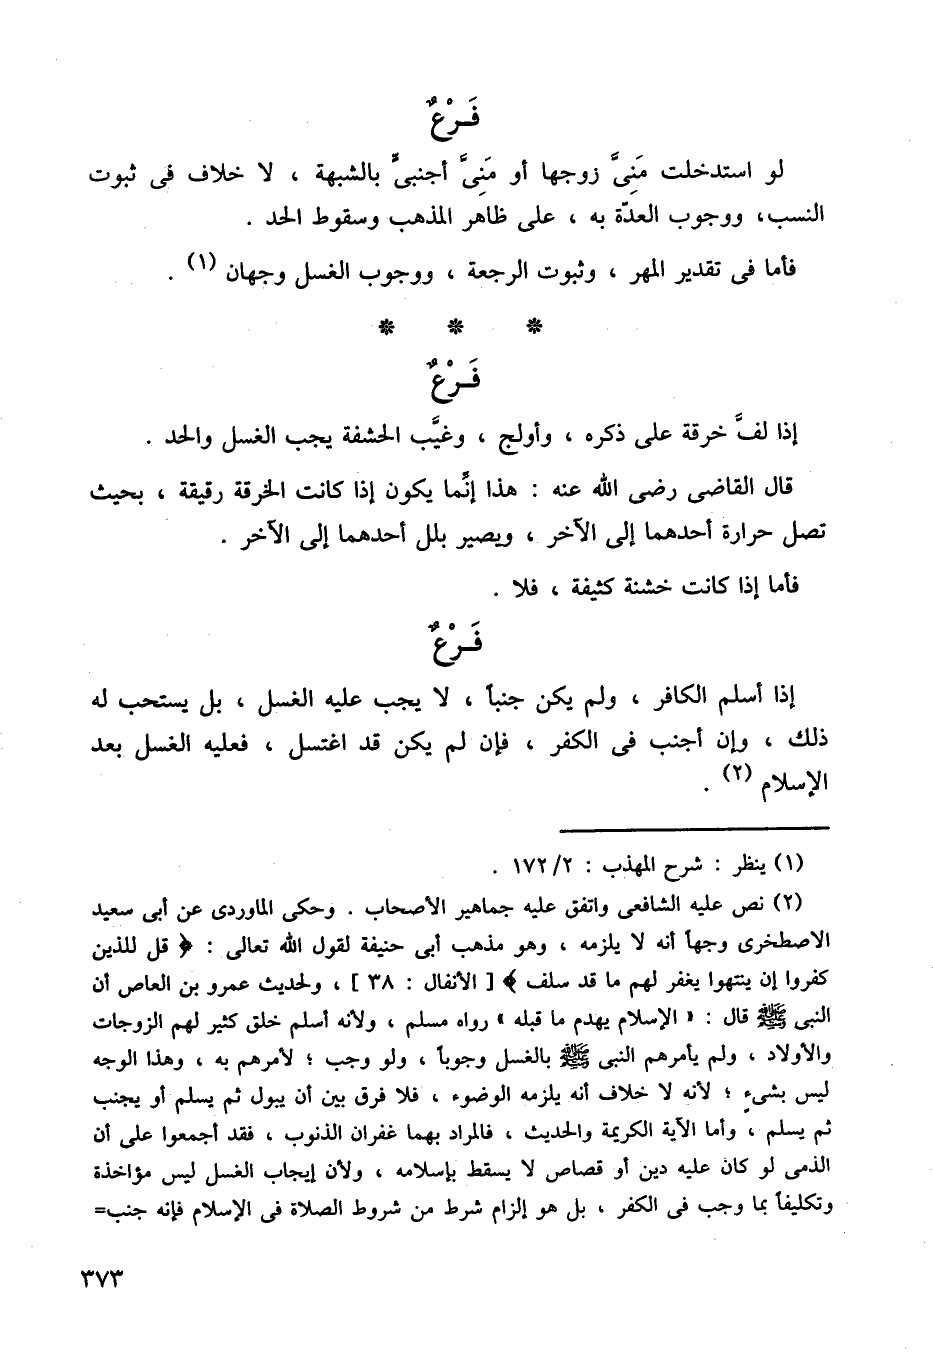 فَرْعٌ
لو استدخلت مَنِىَّ زوجها أو مَنِىَّ أجنبىٍّ بالشبهة ، لا خلاف فى ثبوت
النسب، ووجوب العدّة به ، على ظاهر المذهب وسقوط الحد .
فأما فى تقدير المهر ، وثبوت الرجعة ، ووجوب الغسل وجهان (١) .
* * *
فَرْعٌ
إذا لفَّ خرقة على ذكره ، وأولج ، وغيَّب الحشفة يجب الغسل والحد .
قال القاضى رضى الله عنه : هذا إنَّما يكون إذا كانت الخرقة رقيقة ، بحيث
تصل حرارة أحدهما إلى الآخر ، ويصير بلل أحدهما إلى الآخر .
فأما إذا كانت خشنة كثيفة ، فلا .
فَرْعٌ
إذا أسلم الكافر ، ولم يكن جنباً ، لا يجب عليه الغسل ، بل يستحب له
ذلك ، وإن أجنب فى الكفر ، فإن لم يكن قد اغتسل ، فعليه الغسل بعد
الإسلام (٢) .
(١) ينظر : شرح المهذب : ١٧٢/٢ .
(٢) نص عليه الشافعى واتفق عليه جماهير الأصحاب . وحكى الماوردى عن أبى سعيد
الاصطخرى وجهاً أنه لا يلزمه ، وهو مذهب أبى حنيفة لقول الله تعالى : ﴿ قل للذين
كفروا إن ينتهوا يغفر لهم ما قد سلف ﴾ [ الأنفال : ٣٨ ] ، ولحديث عمرو بن العاص أن
النبى ﷺ قال : « الإسلام يهدم ما قبله » رواه مسلم ، ولأنه أسلم خلق كثير لهم الزوجات
والأولاد ، ولم يأمرهم النبى ﷺ بالغسل وجوباً ، ولو وجب ؛ لأمرهم به ، وهذا الوجه
ليس بشىءٍ ؛ لأنه لا خلاف أنه يلزمه الوضوء ، فلا فرق بين أن يبول ثم يسلم أو يجنب
ثم يسلم ، وأما الآية الكريمة والحديث ، فالمراد بهما غفران الذنوب ، فقد أجمعوا على أن
الذمى لو كان عليه دين أو قصاص لا يسقط بإسلامه ، ولأن إيجاب الغسل ليس مؤاخذة
وتكليفاً بما وجب فى الكفر ، بل هو إلزام شرط من شروط الصلاة فى الإسلام فإنه جنب=
٣٧٣